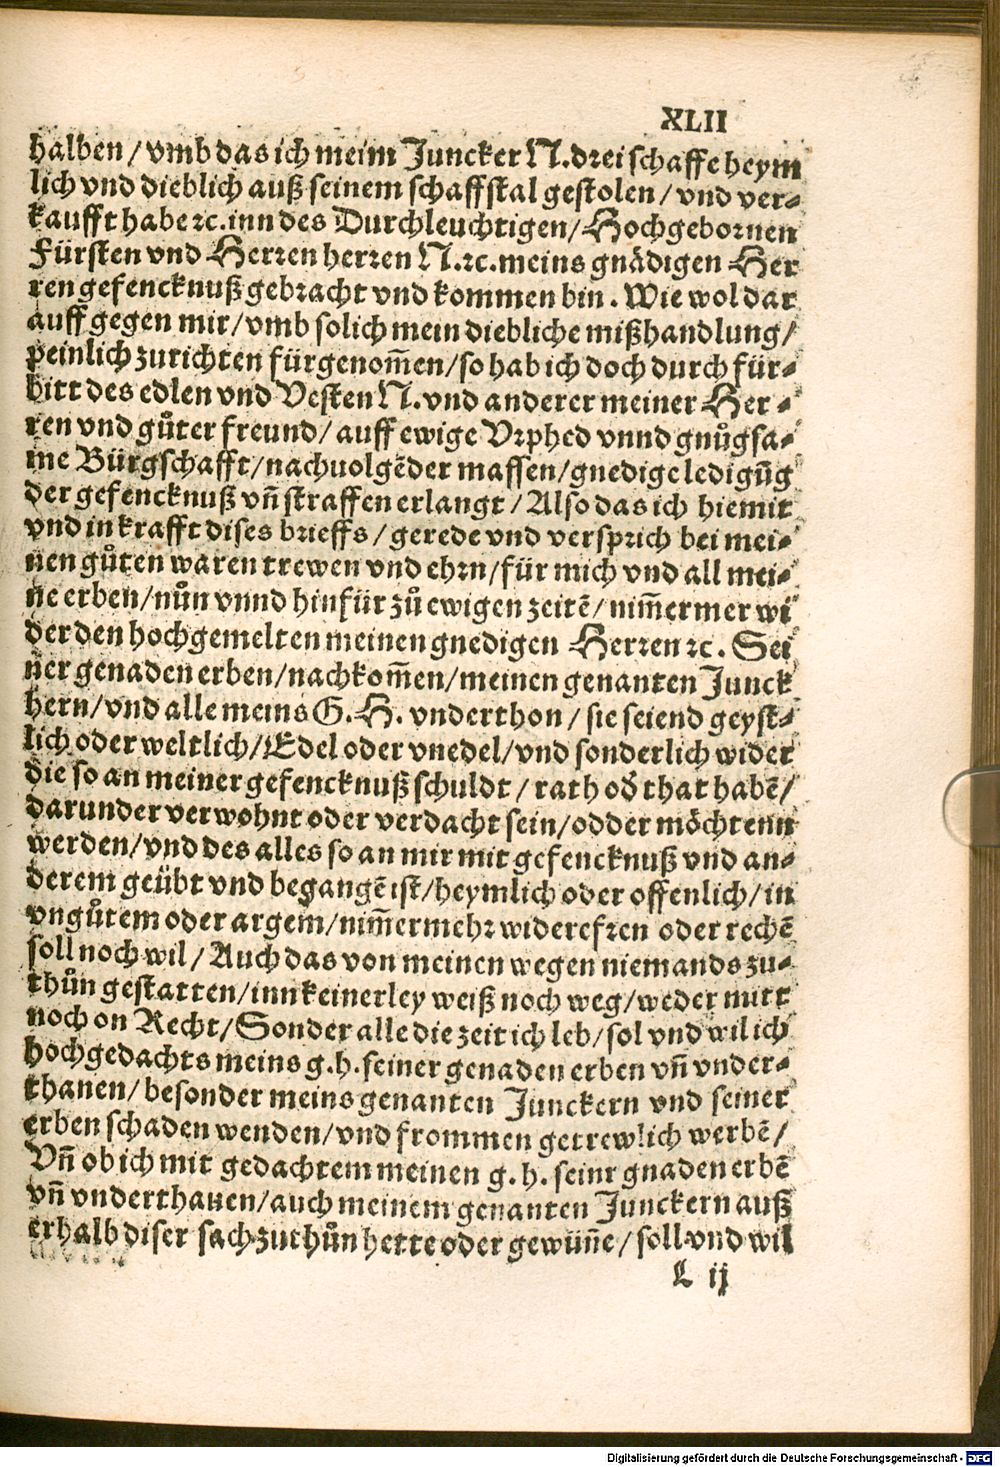 XLII
halben/vmb das ich meim Juncker N. drei schaffe heym
lich vnd dieblich auß seinem schaffstal gestolen/vnd ver-
kaufft habe ꝛc. inn des Durchleuchtigen/Hochgebornen
Fürsten vnd Herren herren N. ꝛc. meins gnädigen Her
ren gefencknuß gebracht vnd kommen bin. Wie wol dar
auff gegen mir/vmb solich mein diebliche mißhandlung/
peinlich zurichten fürgenom̃en/so hab ich doch durch für-
bitt des edlen vnd Vesten N. vnd anderer meiner Her-
ren vnd gůter freund/auff ewige Vrphed vnnd gnůgsa-
me Bürgschafft/nachuolgēder massen/gnedige ledigũg
der gefencknuß vñ straffen erlangt/Also das ich hiemit
vnd in krafft dises brieffs/gerede vnd versprich bei mei-
nen gůten waren trewen vnd ehrn/für mich vnd all mei-
ne erben/nůn vnnd hinfür zů ewigen zeitē/nim̃ermer wi
der den hochgemelten meinen gnedigen Herren ꝛc. Sei
ner genaden erben/nachkom̃en/meinen genanten Junck
hern/vnd alle meins G. H. vnderthon/sie seiend geyst-
lich oder weltlich/Edel oder vnedel/vnd sonderlich wider
die so an meiner gefencknuß schuldt/rath od̕ that habē/
darunder verwohnt oder verdacht sein/odder möchtenn
werden/vnd des alles so an mir mit gefencknuß vnd an-
derem geübt vnd begangē ist/heymlich oder offenlich/in
vngůtem oder argem/nim̃ermehr widerefren oder rechē
soll noch wil/Auch das von meinen wegen niemands zu-
thůn gestatten/inn keinerley weiß noch weg/weder mitt
noch on Recht/Sonder alle die zeit ich leb/sol vnd wil ich
hochgedachts meins g. h. seiner genaden erben vñ vnder-
thanen/besonder meins genanten Junckern vnd seiner
erben schaden wenden/vnd frommen getrewlich werbē/
Vñ ob ich mit gedachtem meinen g. h. seinr gnaden erbē
vñ vnderthanen/auch meinem genanten Junckern auß
erhalb diser sach zuthůn hette oder gewüñe/soll vnd wil
L ij
Digitalisierung gefördert durch die Deutsche Forschungsgemeinschaft - DFG